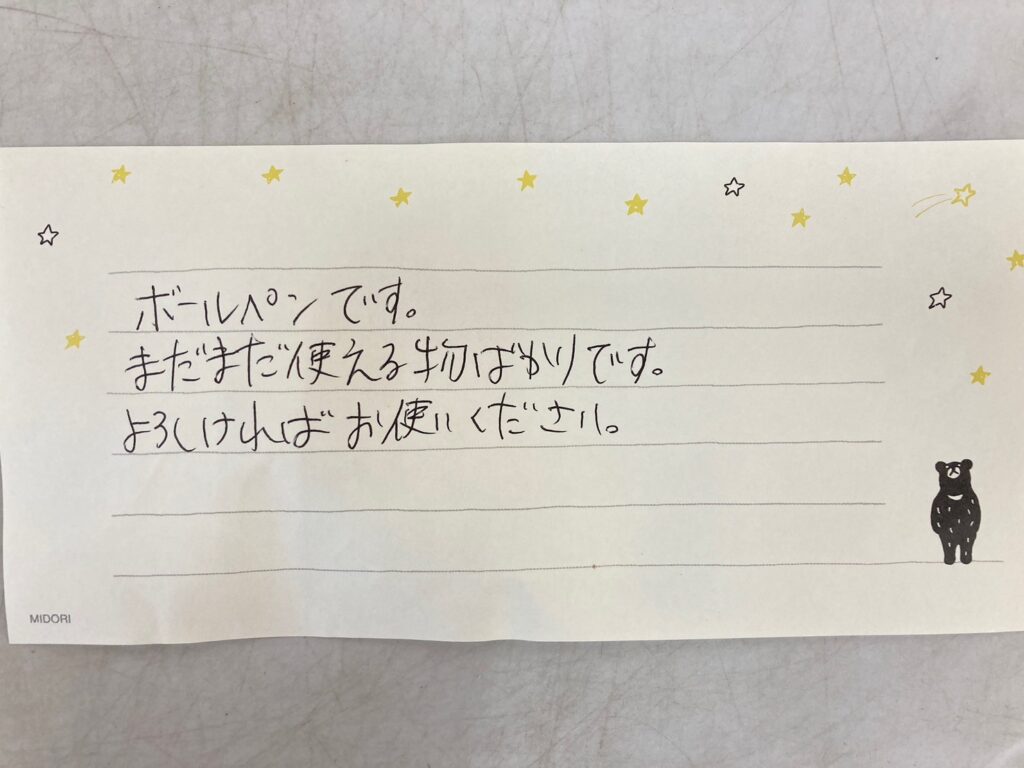 ボールペンです。
まだまだ使える物ばかりです。
よろしければお使いください。
MIDORI